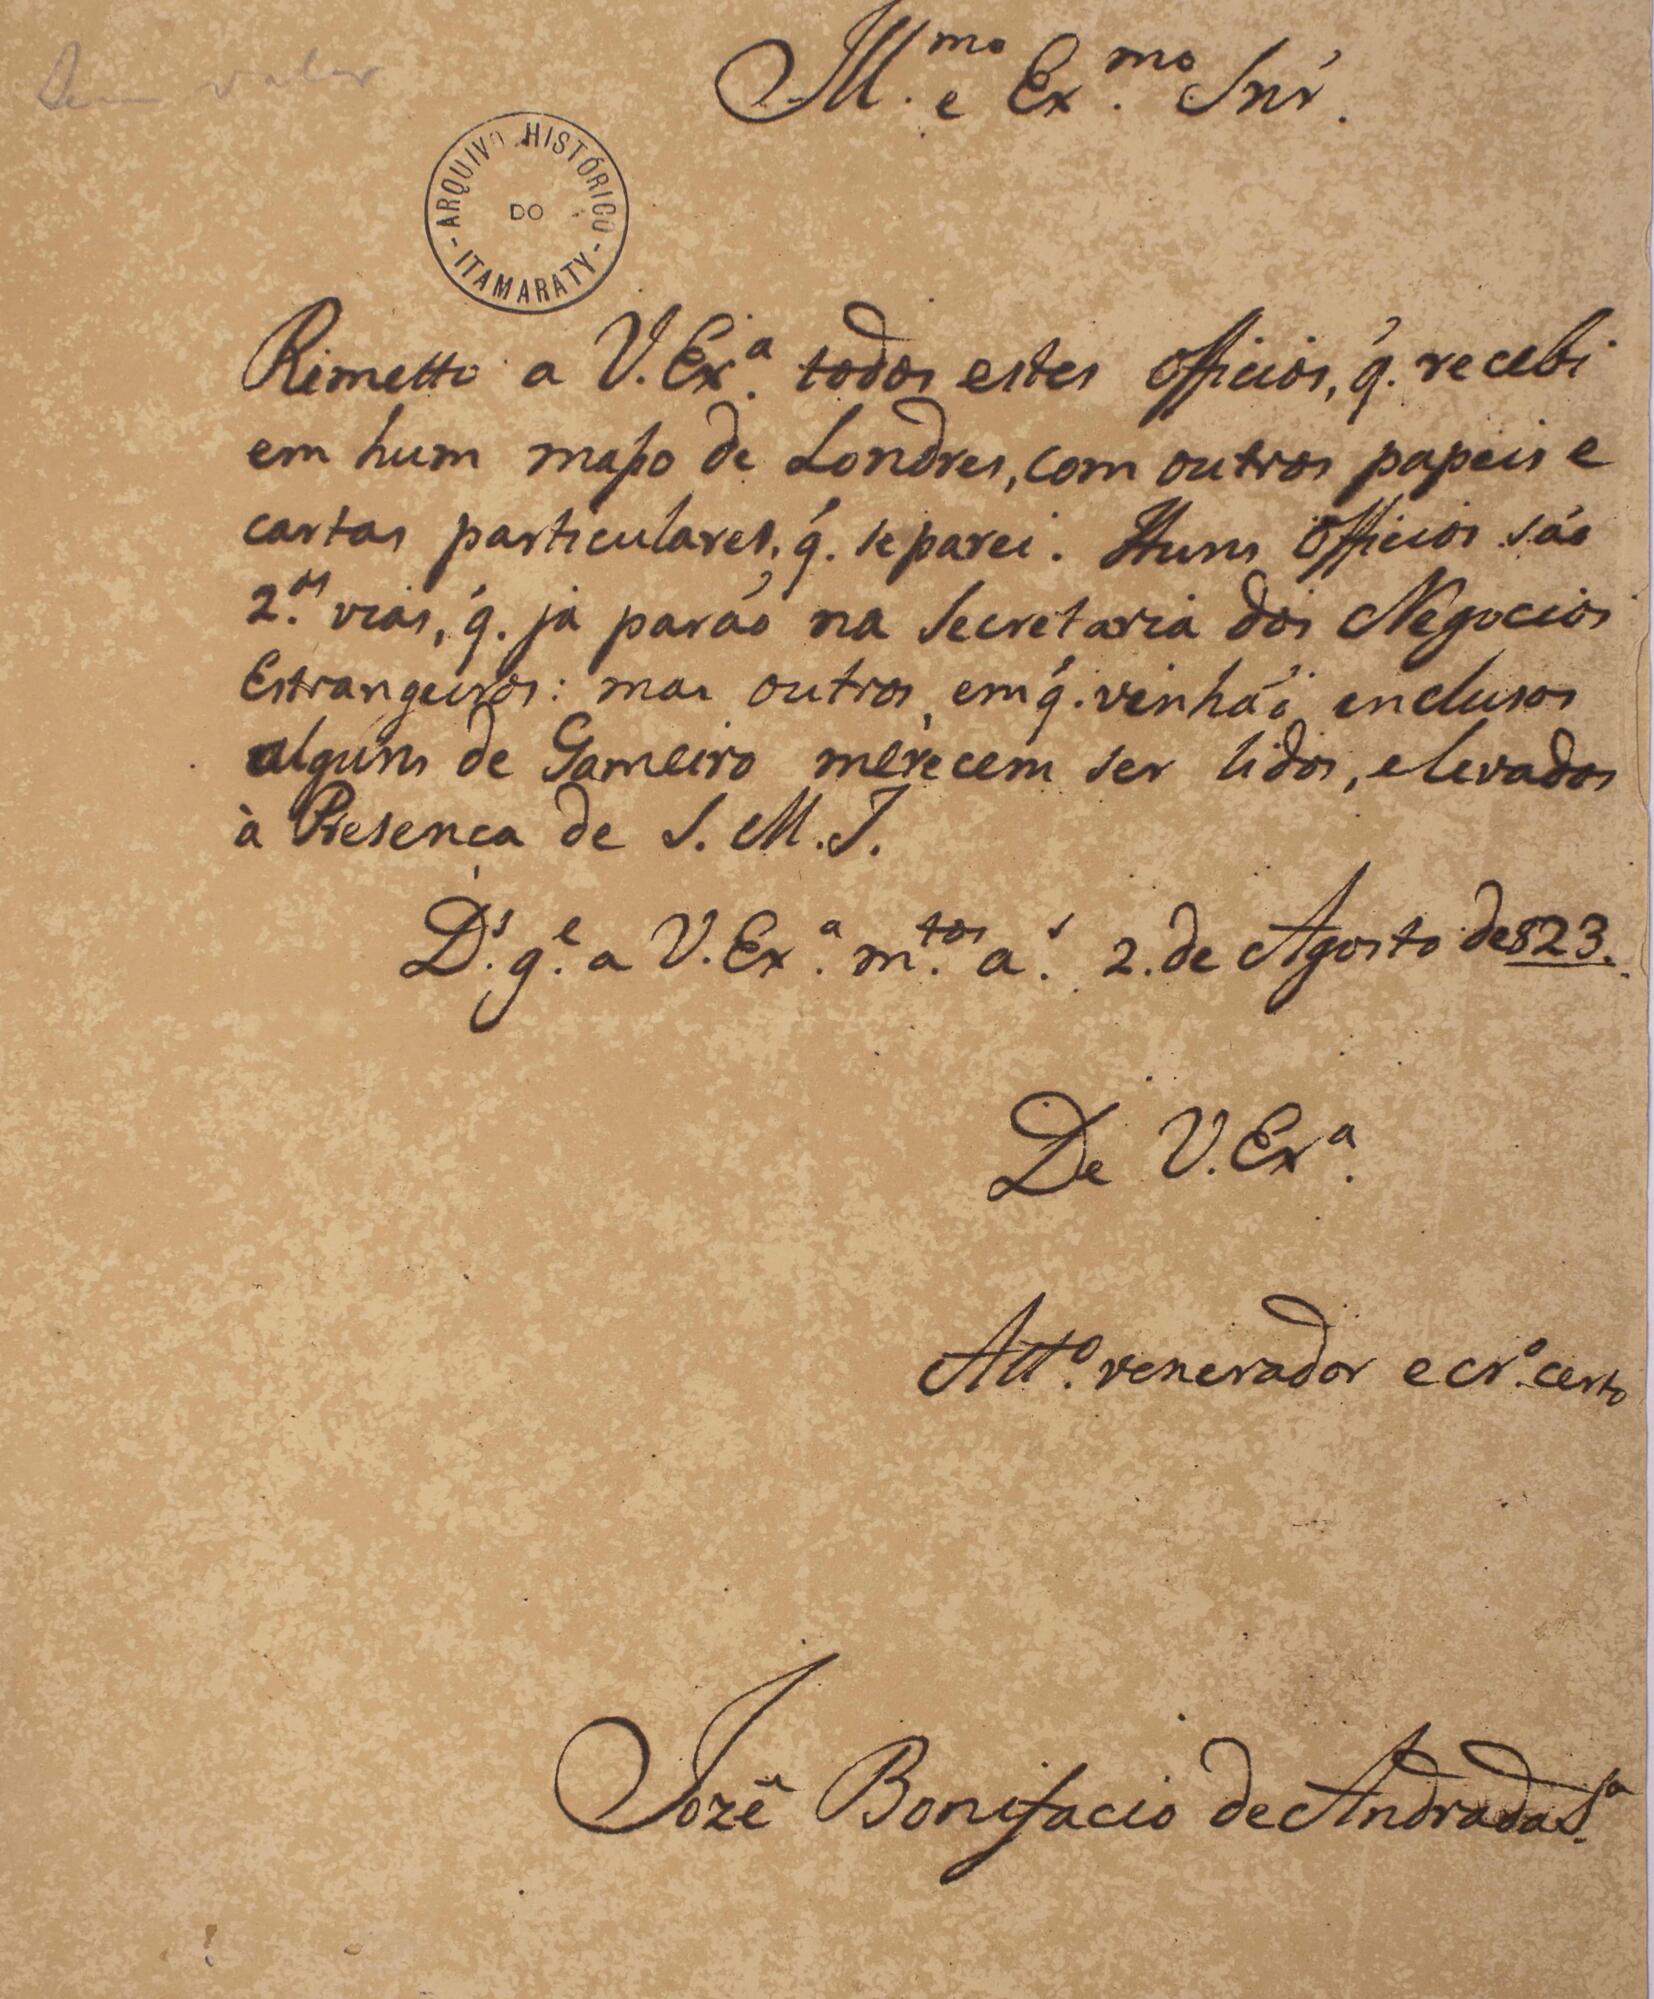 Sem valor
Ill.mo e Ex.mo Snr.
ARQUIVO HISTÓRICO
DO
- ITAMARATY -
Rimetto a V. Ex.a todos estes officios, q. recebi
em hum masso de Londres, com outros papeis e
cartas particulares, q. separei. Huns officios são
2.as vias, q. já parão na Secretaria dos Negocios
Estrangeiros: mas outros, em q. vinhão enclusos
alguns de Gameiro merecem ser lidos, e levados
à Presença de S. M. I.
D.s g.e a V. Ex.a m.tos a.s 2. de Agosto de 823.
De V. Ex.a
Att.o venerador e cr.o certo
Jozé Bonifacio de Andrada S.a